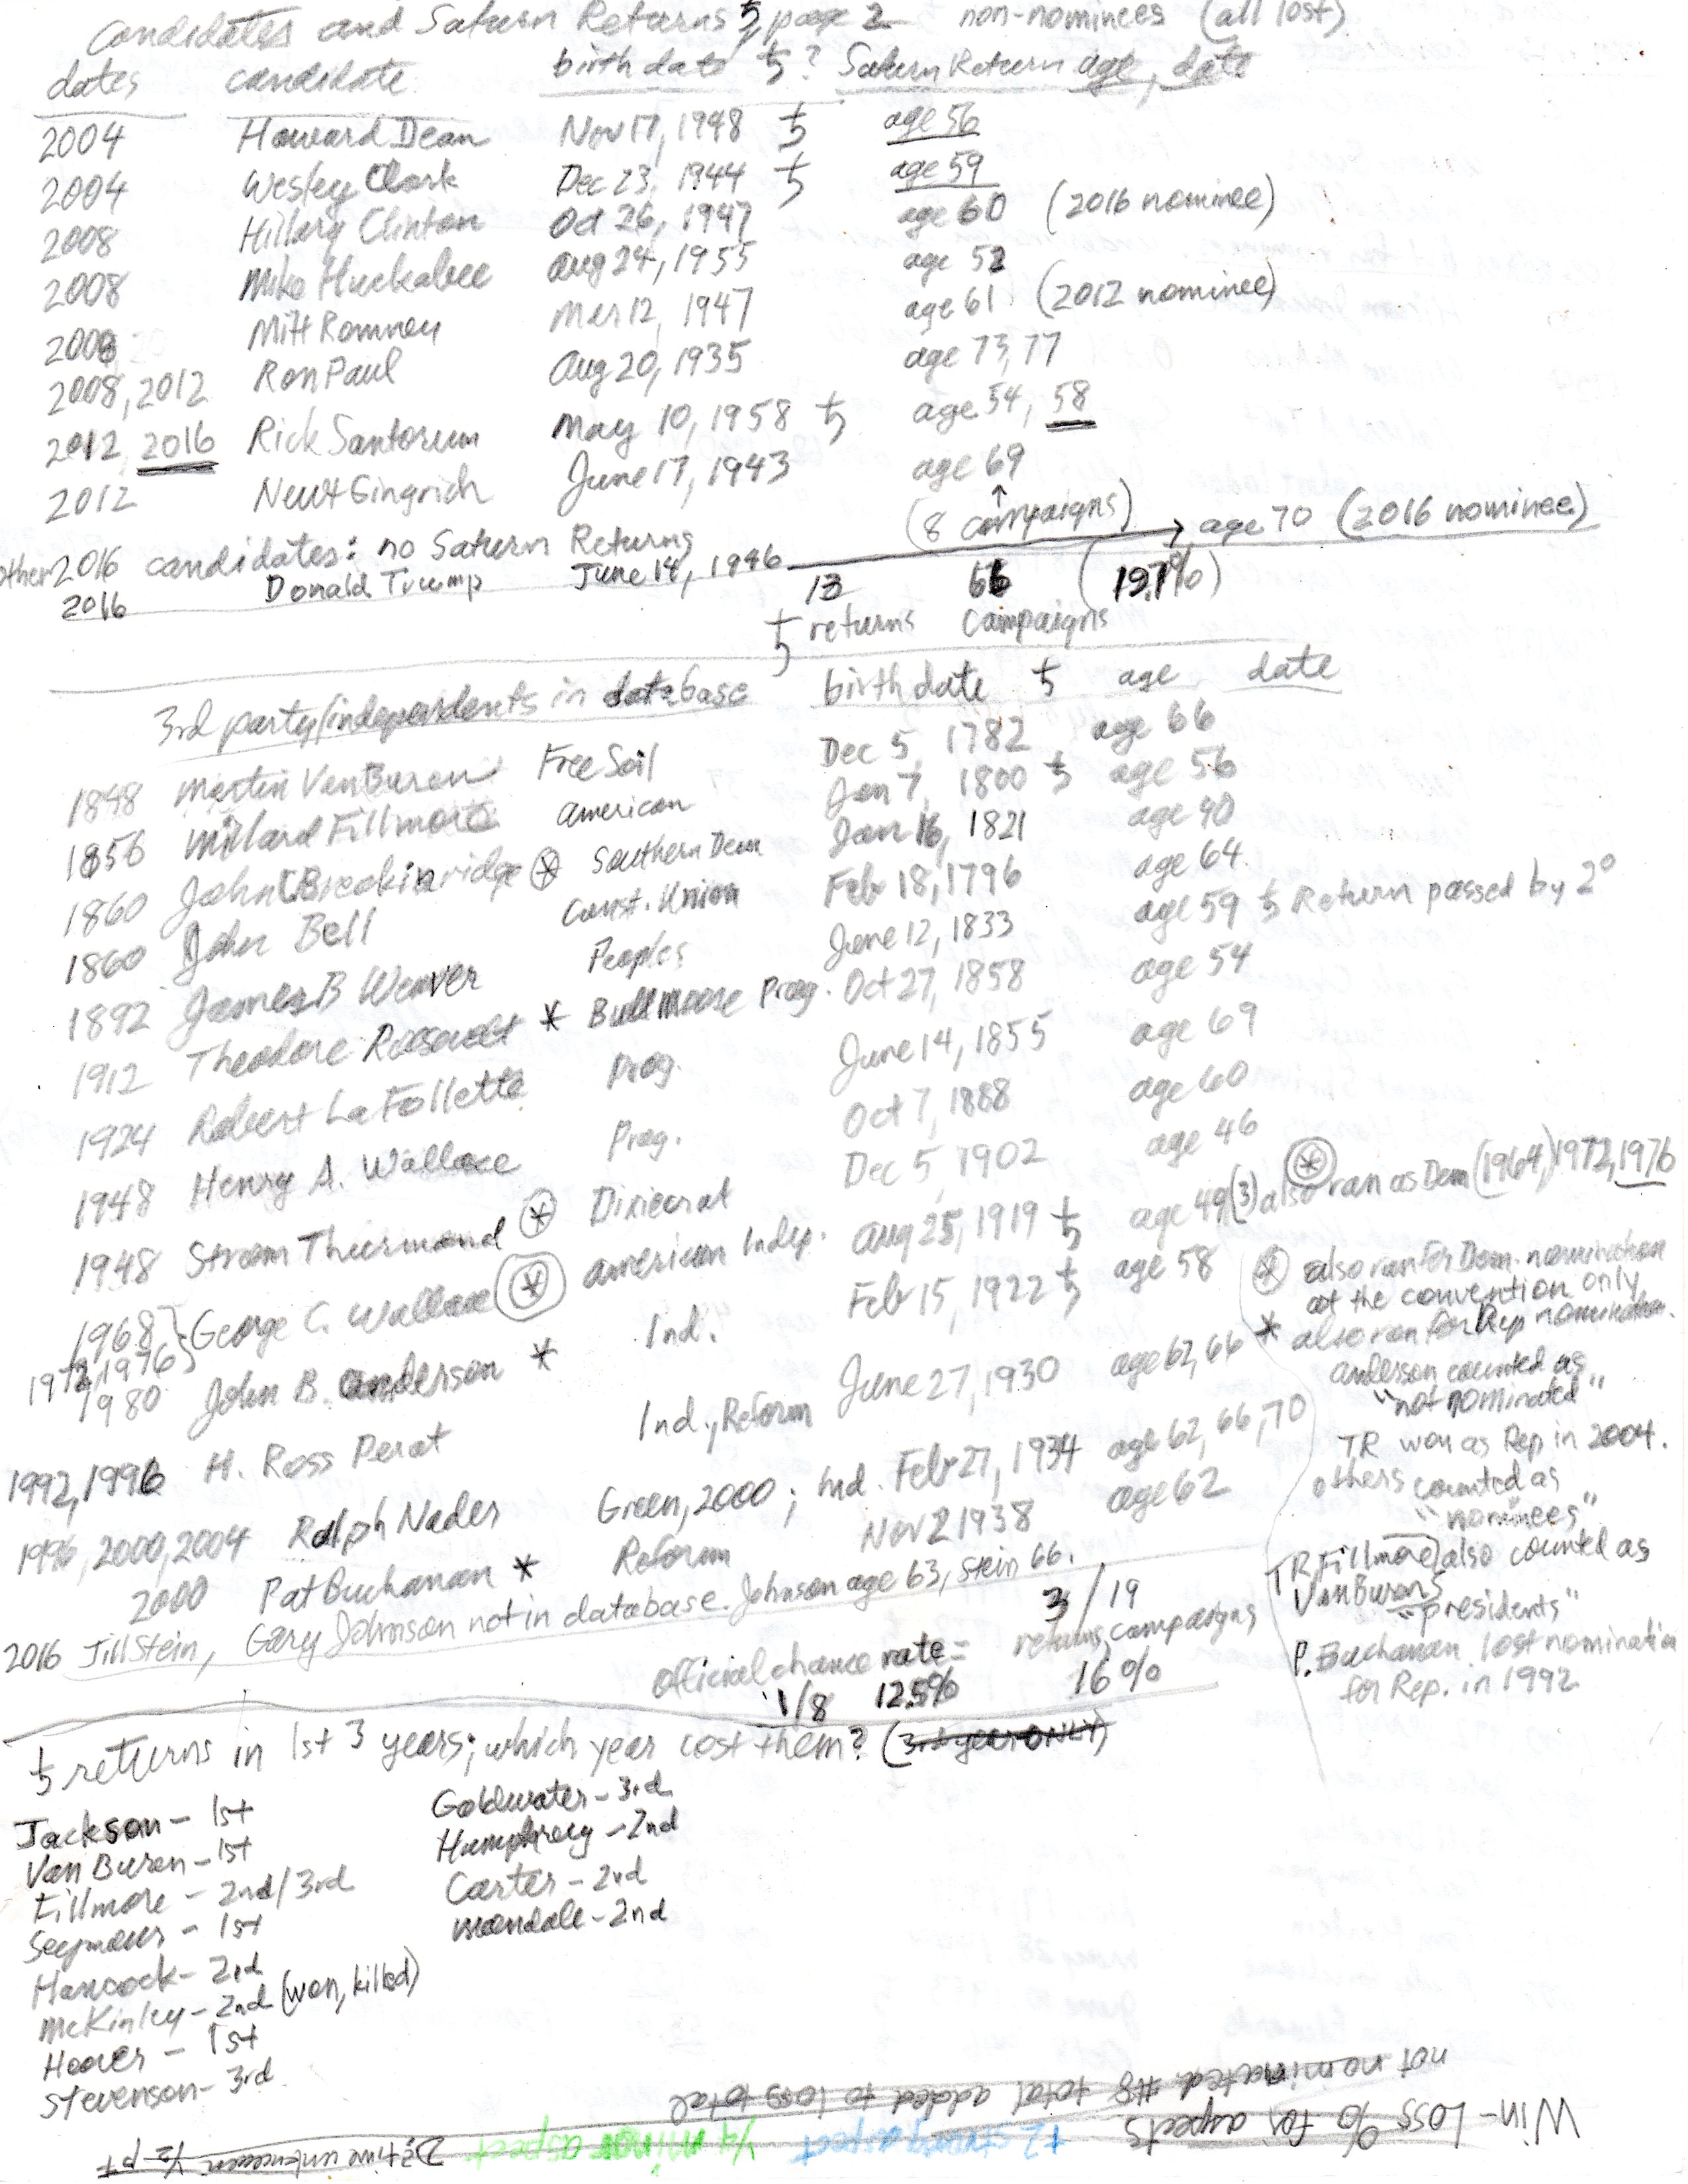 Candidates and Saturn Returns ♄, page 2 non-nominees (all lost)
dates candidate birth date ♄? Saturn Return age, date
2004 Howard Dean Nov 17, 1948 ♄ age 56
2004 Wesley Clark Dec 23, 1944 ♄ age 59
2008 Hillary Clinton Oct 26, 1947 age 60 (2016 nominee)
2008 Mike Huckabee Aug 24, 1955 age 52
2008 Mitt Romney Mar 12, 1947 age 61 (2012 nominee)
2008, 2012 Ron Paul Aug 20, 1935 age 73, 77
2012, 2016 Rick Santorum May 10, 1958 ♄ age 54, 58
2012 Newt Gingrich June 17, 1943 age 69
↑
(8 campaigns)
other 2016 candidates: no Saturn Returns
2016 Donald Trump June 14, 1946 → age 70 (2016 nominee)
13 66 (19.7%)
♄ returns campaigns
3rd party/independents in database birth date ♄ age date
1848 Martin Van Buren Free Soil Dec 5, 1782 age 66
1856 Millard Fillmore American Jan 7, 1800 ♄ age 56
1860 John C Breckinridge ⊛ Southern Dem Jan 16, 1821 age 40
1860 John Bell Const. Union Feb 18, 1796 age 64
1892 James B Weaver Peoples June 12, 1833 age 59 ♄ Return passed by 2°
1912 Theodore Roosevelt * Bull Moose Prog. Oct 27, 1858 age 54
1924 Robert La Follette Prog. June 14, 1855 age 69
1948 Henry A. Wallace Prog. Oct 7, 1888 age 60
1948 Strom Thurmond ⊛ Dixiecrat Dec 5, 1902 age 46
1968 } George C. Wallace ⊛ American Indep. Aug 25, 1919 ♄ age 49 (3) ⊛ also ran as Dem (1964,) 1972, 1976
1972, 1976
1980 John B. Anderson * Ind. Feb 15, 1922 ♄ age 58
1992, 1996 H. Ross Perot Ind., Reform June 27, 1930 age 62, 66
1996, 2000, 2004 Ralph Nader Green, 2000; Ind. Feb 27, 1934 age 62, 66, 70
2000 Pat Buchanan * Reform Nov 2 1938 age 62
2016 Jill Stein, Gary Johnson not in database. Johnson age 63, Stein 66.
⊛ also ran for Dem. nomination
at the convention only
* also ran for Rep nomination.
Anderson counted as
"not nominated"
TR won as Rep in 2004.
others counted as
"nominees"
TR, Fillmore, also counted as
Van Buren
"presidents"
P. Buchanan lost nomination
for Rep. in 1992
3 / 19
returns, campaigns
official chance rate = 16%
1/8 12.5%
♄ returns in 1st 3 years; which year cost them? (3rd year ONLY)
Jackson – 1st
Van Buren – 1st
Fillmore – 2nd/3rd
Seymour – 1st
Hancock – 2nd
McKinley – 2nd (won, killed)
Hoover – 1st
Stevenson – 3rd
Goldwater – 3rd
Humphrey – 2nd
Carter – 2nd
Mondale – 2nd
not nominated #8 total added to loss total
Win-Loss % for aspects
+2 strong aspect
1/4 minor aspect
D: time unknown 1/2 pt